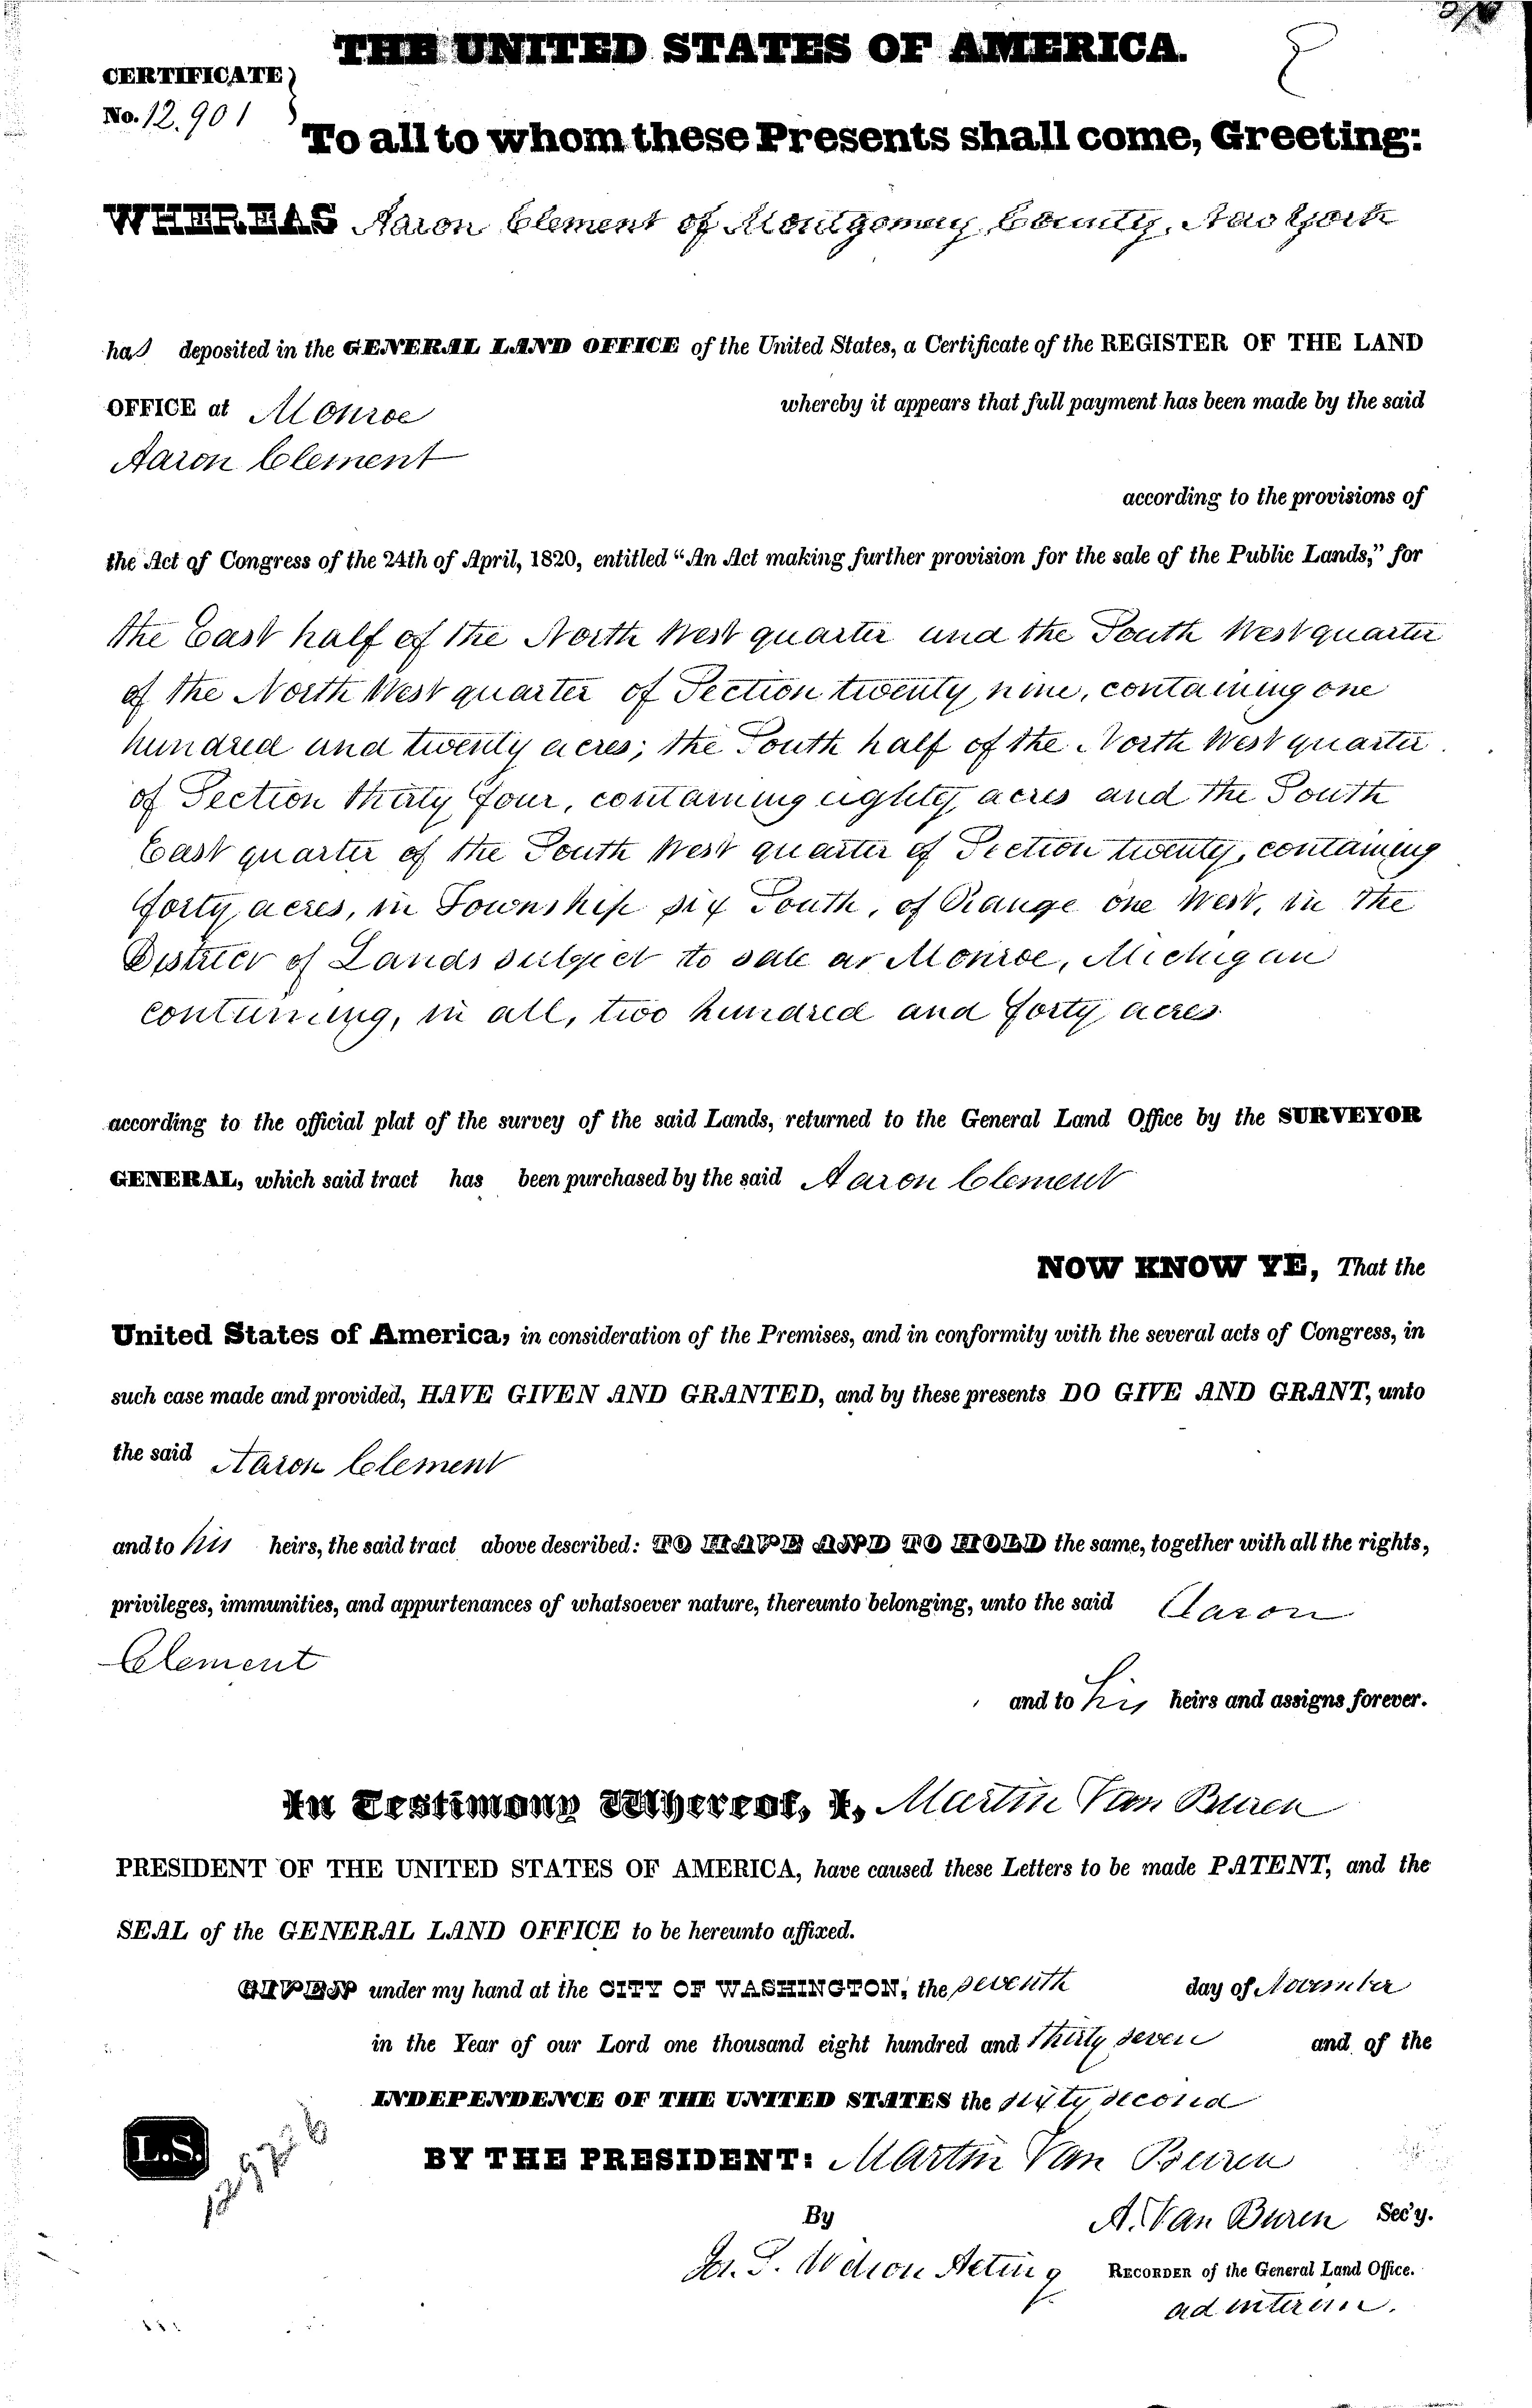 THE UNITED STATES OF AMERICA.
CERTIFICATE
No. 12.901
To all to whom these Presents shall come, Greeting:
WHEREAS Aaron Clement of Montgomery County, New York
has deposited in the GENERAL LAND OFFICE of the United States, a Certificate of the REGISTER OF THE LAND
OFFICE at Monroe whereby it appears that full payment has been made by the said
Aaron Clement
according to the provisions of
the Act of Congress of the 24th of April, 1820, entitled "An Act making further provision for the sale of the Public Lands," for
the East half of the North West quarter and the South West quarter
of the North West quarter of Section twenty nine, containing one
hundred and twenty acres; the South half of the North West quarter
of Section thirty four, containing eighty acres and the South
East quarter of the South West quarter of Section twenty, containing
forty acres, in Township six South, of Range one West, in the
District of Lands subject to sale at Monroe, Michigan
containing, in all, two hundred and forty acres
according to the official plat of the survey of the said Lands, returned to the General Land Office by the SURVEYOR
GENERAL, which said tract has been purchased by the said Aaron Clement
NOW KNOW YE, That the
United States of America, in consideration of the Premises, and in conformity with the several acts of Congress, in
such case made and provided, HAVE GIVEN AND GRANTED, and by these presents DO GIVE AND GRANT, unto
the said Aaron Clement
and to his heirs, the said tract above described: TO HAVE AND TO HOLD the same, together with all the rights,
privileges, immunities, and appurtenances of whatsoever nature, thereunto belonging, unto the said Aaron
Clement
and to his heirs and assigns forever.
In Testimony Whereof, I, Martin Van Buren
PRESIDENT OF THE UNITED STATES OF AMERICA, have caused these Letters to be made PATENT, and the
SEAL of the GENERAL LAND OFFICE to be hereunto affixed.
GIVEN under my hand at the CITY OF WASHINGTON, the seventh day of November
in the Year of our Lord one thousand eight hundred and thirty seven and of the
INDEPENDENCE OF THE UNITED STATES the sixty second
L.S.
BY THE PRESIDENT: Martin Van Buren
By A. Van Buren Sec'y.
Jos. S. Wilson Acting RECORDER of the General Land Office.
ad interim.